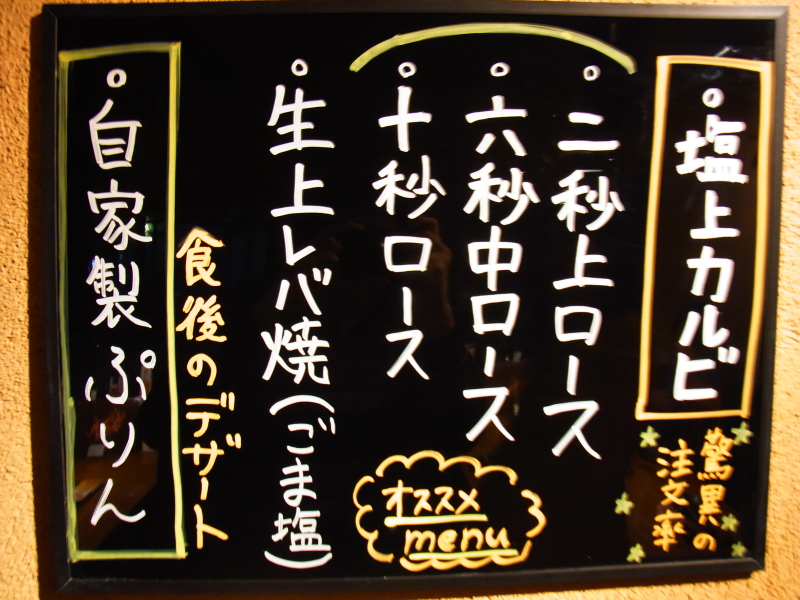 ○塩上カルビ
驚異の
注文率
○二秒上ロース
○六秒中ロース
○十秒ロース
オススメ
menu
○生上レバ焼(ごま塩)
食後のデザート
○自家製ぷりん